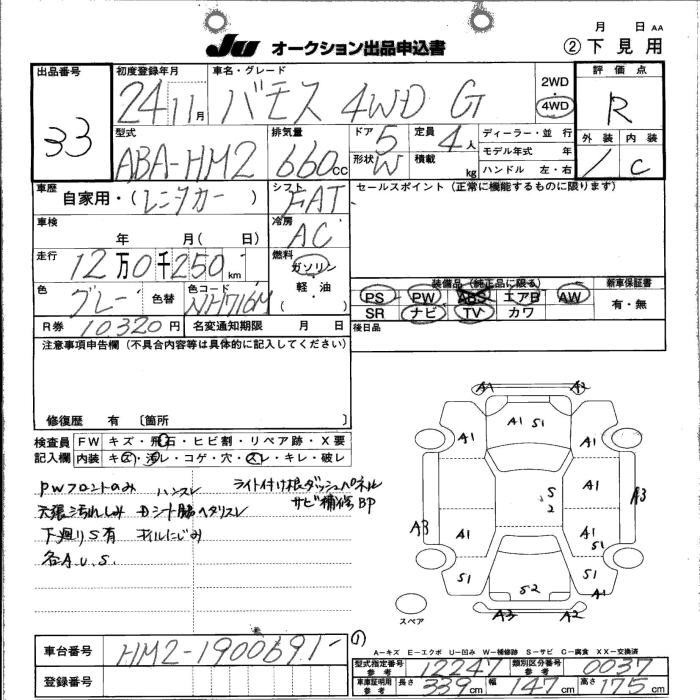 月 日 AA
JU オークション出品申込書 ②下見用
出品番号 33
初度登録年月 24 11月
車名・グレード バモス 4WD G
2WD・4WD
評価点 R
外装 / 内装 C
型式 ABA-HM2
排気量 660cc
ドア 5 定員 4人
形状 W 積載 kg
ディーラー・並 行
モデル年式 年
ハンドル 左・右
車歴 自家用・(レンタカー)
シフト FAT
セールスポイント(正常に機能するものに限ります)
車検 年 月( 日)
冷房 AC
走行 12万0千250km
燃料 ガソリン・軽油( )
色 グレー 色替 色コード NH716M
装備品(純正品に限る) 新車保証書
PS PW ABS エアB AW 有・無
SR ナビ TV カワ
R券 10320円 名変通知期限 月 日
後日品
注意事項申告欄(不具合内容等は具体的に記入してください)
修復歴 有 〔箇所 〕
検査員記入欄 FW キズ・飛石・ヒビ割・リペア跡・X要
内装 キズ・汚レ・コゲ・穴・スレ・キレ・破レ
PWフロントのみ ハンスレ ライト付け根ダッシュパネル
サビ補修BP
天張汚れしみ Dシート脇ヘタリスレ
下廻りS有 オイルにじみ
各A.U.S.
A1 A2
A1 S1
A1 A1
S
2
A1 A1
A3 A3
A1 A1
S1
S1 S2 S1
A1
A3 A2
スペア
車台番号 HM2-1900691-
登録番号
①
A-キズ E-エクボ U-凹み W-補修跡 S-サビ C-腐食 XX-交換済
型式指定番号 参考 12247 類別区分番号 参考 0037
車庫証明用 参考 長さ 339cm 幅 147cm 高さ 175cm